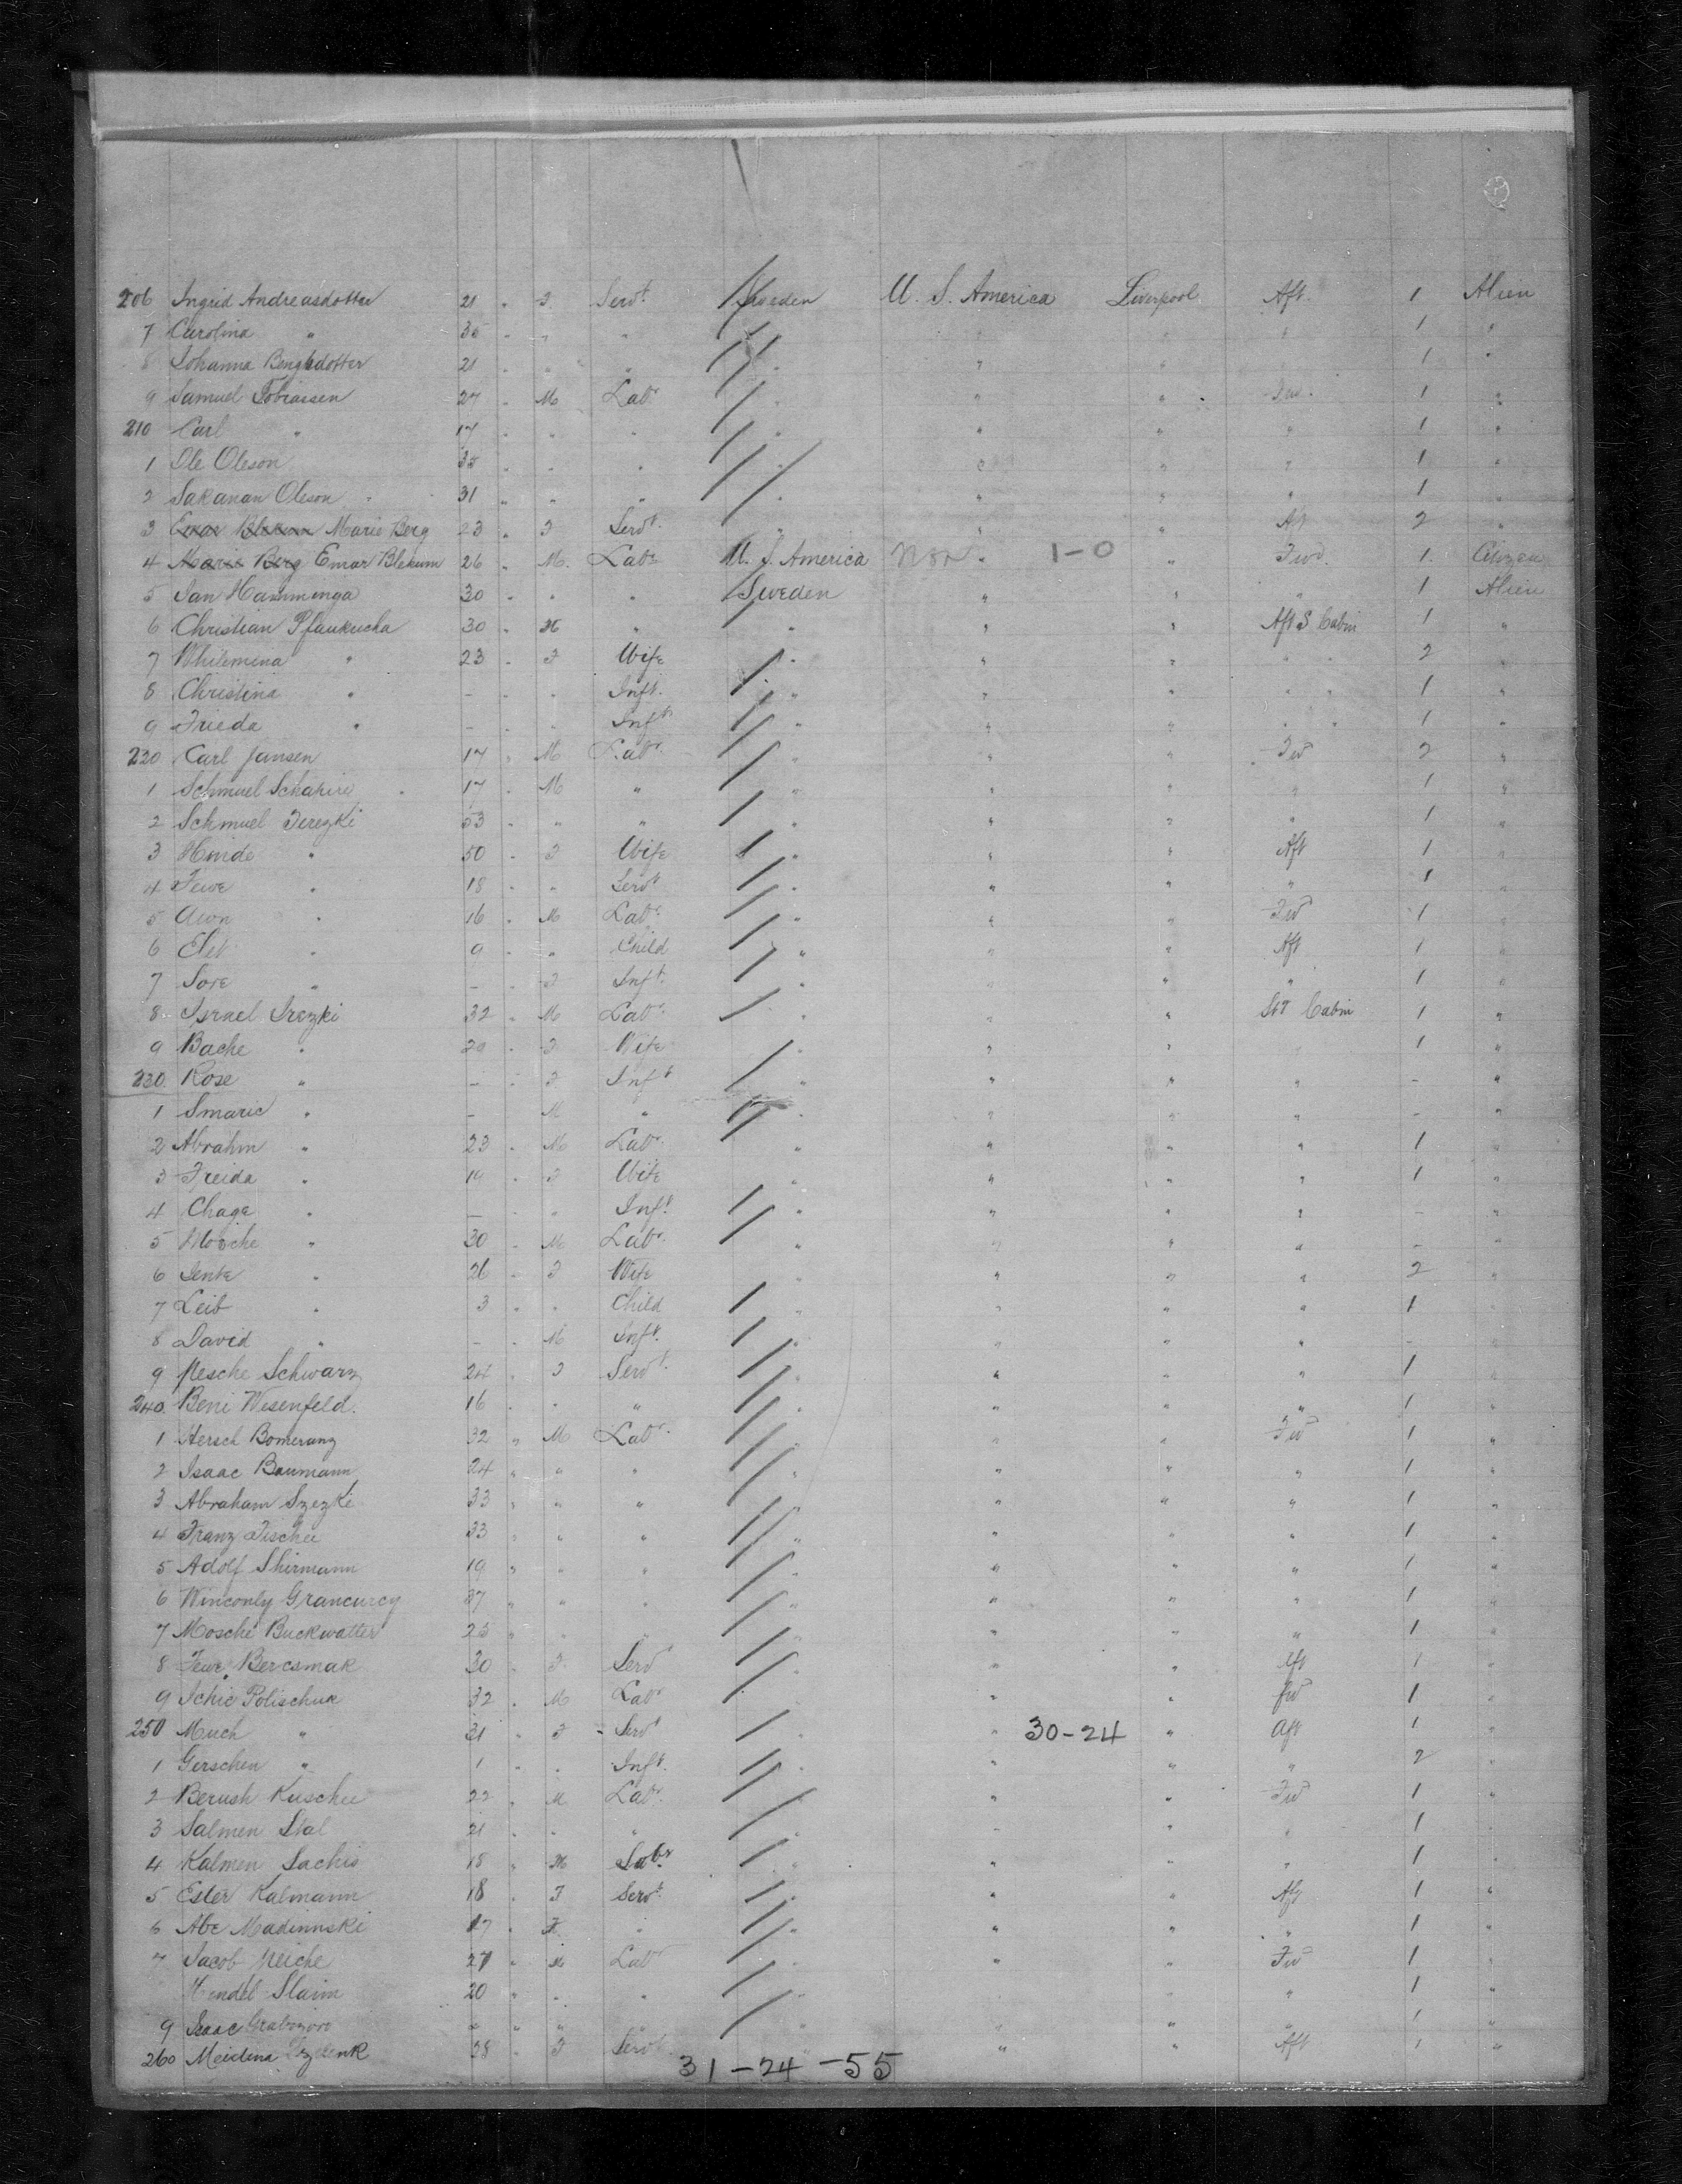 206 Ingrid Andreasdotter 21 " F. Servt. Sweden U. S. America Liverpool Aft. 1 Alien
7 Carolina " 30 " " " " " " 1 "
8 Johanna Bengtsdotter 21 " " " " " " 1 "
9 Samuel Tobiassen 27 " M Labr " " " Fwd. 1 "
210 Carl " 17 " " " " " " " 1 "
1 Ole Oleson 35 " " " " " " " 1 "
2 Sakanan Oleson 31 " " " " " " " 1 "
3 Emar Blekum Marie Berg 23 " F Servt. " " " Aft 2 "
4 Marie Berg Emar Blekum 26 " M. Labr U. S. America " 1-0 " Fwd. 1. Citizen
5 Jan Hamminga 30 " " " Sweden " " " 1 Alien
6 Christian Pfaukucha 30 " M " " " " Aft S Cabin 1 "
7 Whilemina " 23 " F Wife " " " " " 2 "
8 Christina " - " " Inft. " " " " " 1 "
9 Frieda " - " " Inft " " " " " 1 "
220 Carl Jansen 17 " M Labr " " " Fwd 2 "
1 Schmuel Schapiro 17 " M " " " " " 1 "
2 Schmuel 53 " " " " " " " 1 "
3 Hinde " 50 " F Wife " " " Aft 1 "
4 " 18 " " Servt " " " " 1 "
5 " 16 " M Labr " " " Fwd 1 "
6 " 9 " " Child " " " Aft 1 "
7 Sore " - " F Inft. " " " " 1 "
8 Israel 32 " M Labr " " " Cabin 1 "
9 Bache " 29 " F Wife " " " 1 "
230. Rose " - " F Inft " " " " - "
1 Smaric " - M " " " " " - "
2 Abrahm " 23 " M Labr " " " " 1 "
3 Freida " 19 " F Wife " " " " 1 "
4 Chage " - " " Inft " " " " - "
5 Mosche " 30 " M Labr. " " " " - "
6 Jente " 26 " F Wife " " " " 2 "
7 Leib " 3 " " Child " " " " 1 "
8 David " - " M Inft. " " " " - "
9 Nesche Schwarz 24 " F Servt. " " " " 1 "
240. Beni Wesenfeld. 16 " " " " " " " 1 "
1 Hersch Bomeranz 32 " M Labr. " " " Fwd 1 "
2 Isaac Baumann 24 " " " " " " " 1 "
3 Abraham Szezki 33 " " " " " " " 1 "
4 Franz 33 " " " " " " " 1 "
5 Adolf Shirmann 19 " " " " " " " 1 "
6 Winconty Grancurcy 37 " " " " " " " 1 "
7 Mosche Buckwatter 25 " " " " " " " 1 "
8 Bercsmak 30 " F Servt " " " Aft 1 "
9 Polischuk 32 " M Labr " " " fwd 1 "
250 Much " 31 " F Servt " " 30-24 " Aft 1 "
1 Gerschen " 1 " " Inft. " " " " 2 "
2 Berush 22 " M Labr. " " " Fwd 1 "
3 Salmen Stal 21 " " " " " " " 1 "
4 Kalmen Sachis 18 " M Labr " " " " 1 "
5 Ester Kalmann 18 " F Servt. " " " Aft 1 "
6 Abe Madinnski 17 " " " " " " 1 "
7 Jacob 27 " M Labr " " " Fwd 1 "
Mendel Slaim 20 " " " " " " " 1 "
9 Isaac " " " " " " " 1 "
260 Meidena 28 " F Servt " " " Aft 1 "
31-24-55